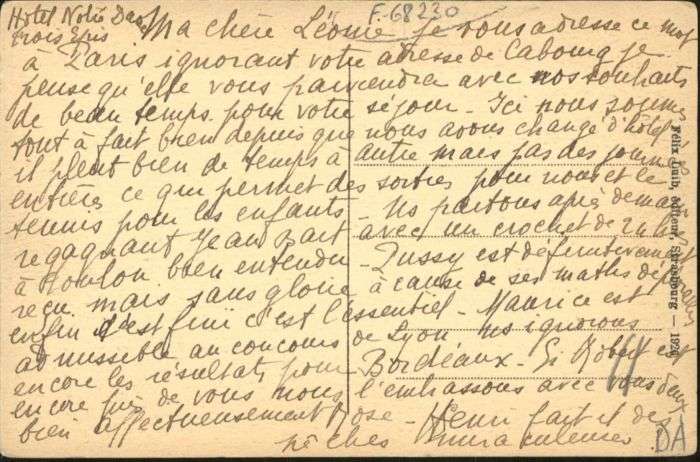 Hôtel Notre Dame
trois Epis
F-68230
Ma chère Léonie je vous adresse ce mot
à Paris ignorant votre adresse de Cabourg je
pense qu'elle vous parviendra avec nos souhaits
de beau temps pour votre séjour - Ici nous sommes
tout à fait bien depuis que nous avons changé d'hôtel
il pleut bien de temps à autre mais pas des journées
entières ce qui permet des sorties pour nous et le
tennis pour les enfants - Ns partons après demain
regagnant Jean part avec un crochet de 24 h
à Toulon bien entendu - Pussy est définitivement
reçu mais sans gloire à cause de ses maths
enfin c'est fini c'est l'essentiel - Maurice est
admissible au concours de Lyon ns ignorons
encore les résultats pour Bordeaux - Si Robert est
encore près de vous nous l'embrassons avec vous deux
bien affectueusement Rose - Henri fait
pêches miraculeuses
Félix Luib, éditeur, Strasbourg - 1926
DA